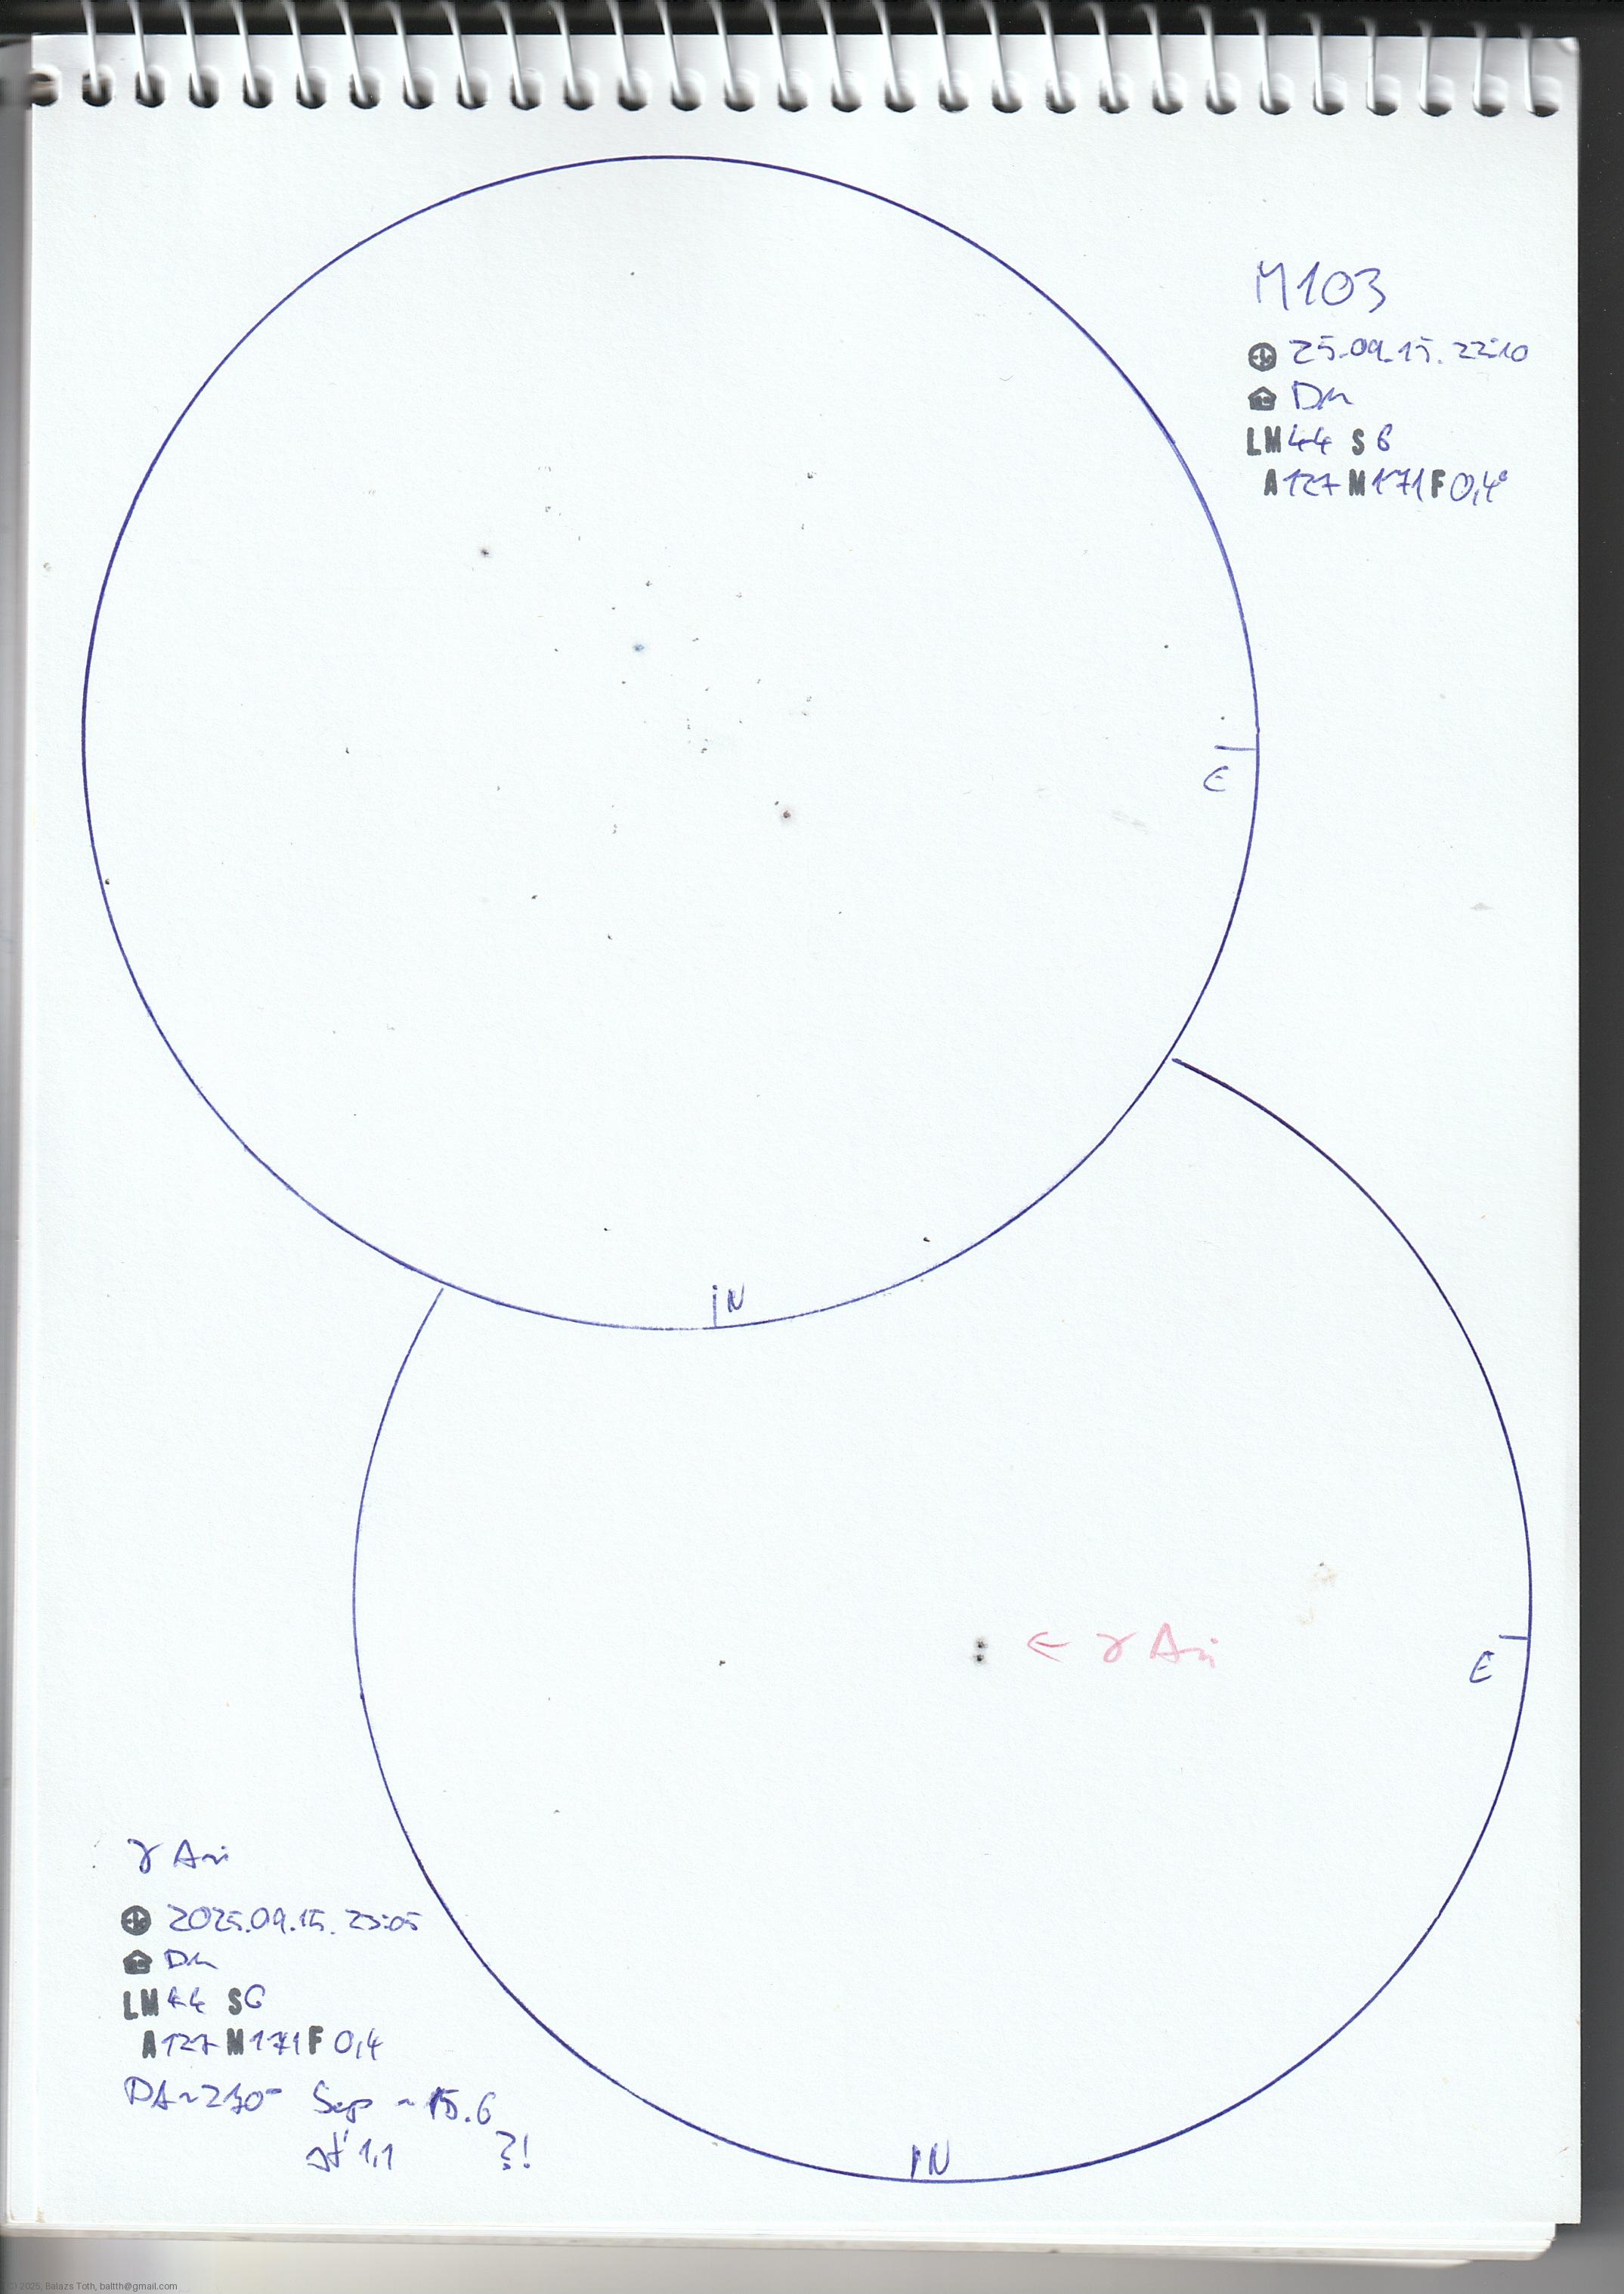 M103
25.09.15. 22:10
Dm
LM 44 S 6
A 127 M 171 F 0,4°
E
N
← γ Ari
E
γ Ari
2025.09.15. 23:05
Dm
LM 44 S 6
A 127 M 171 F 0,4
Sep ~15.6
1,1 ?!
N
© 2025, Balazs Toth, baltth@gmail.com